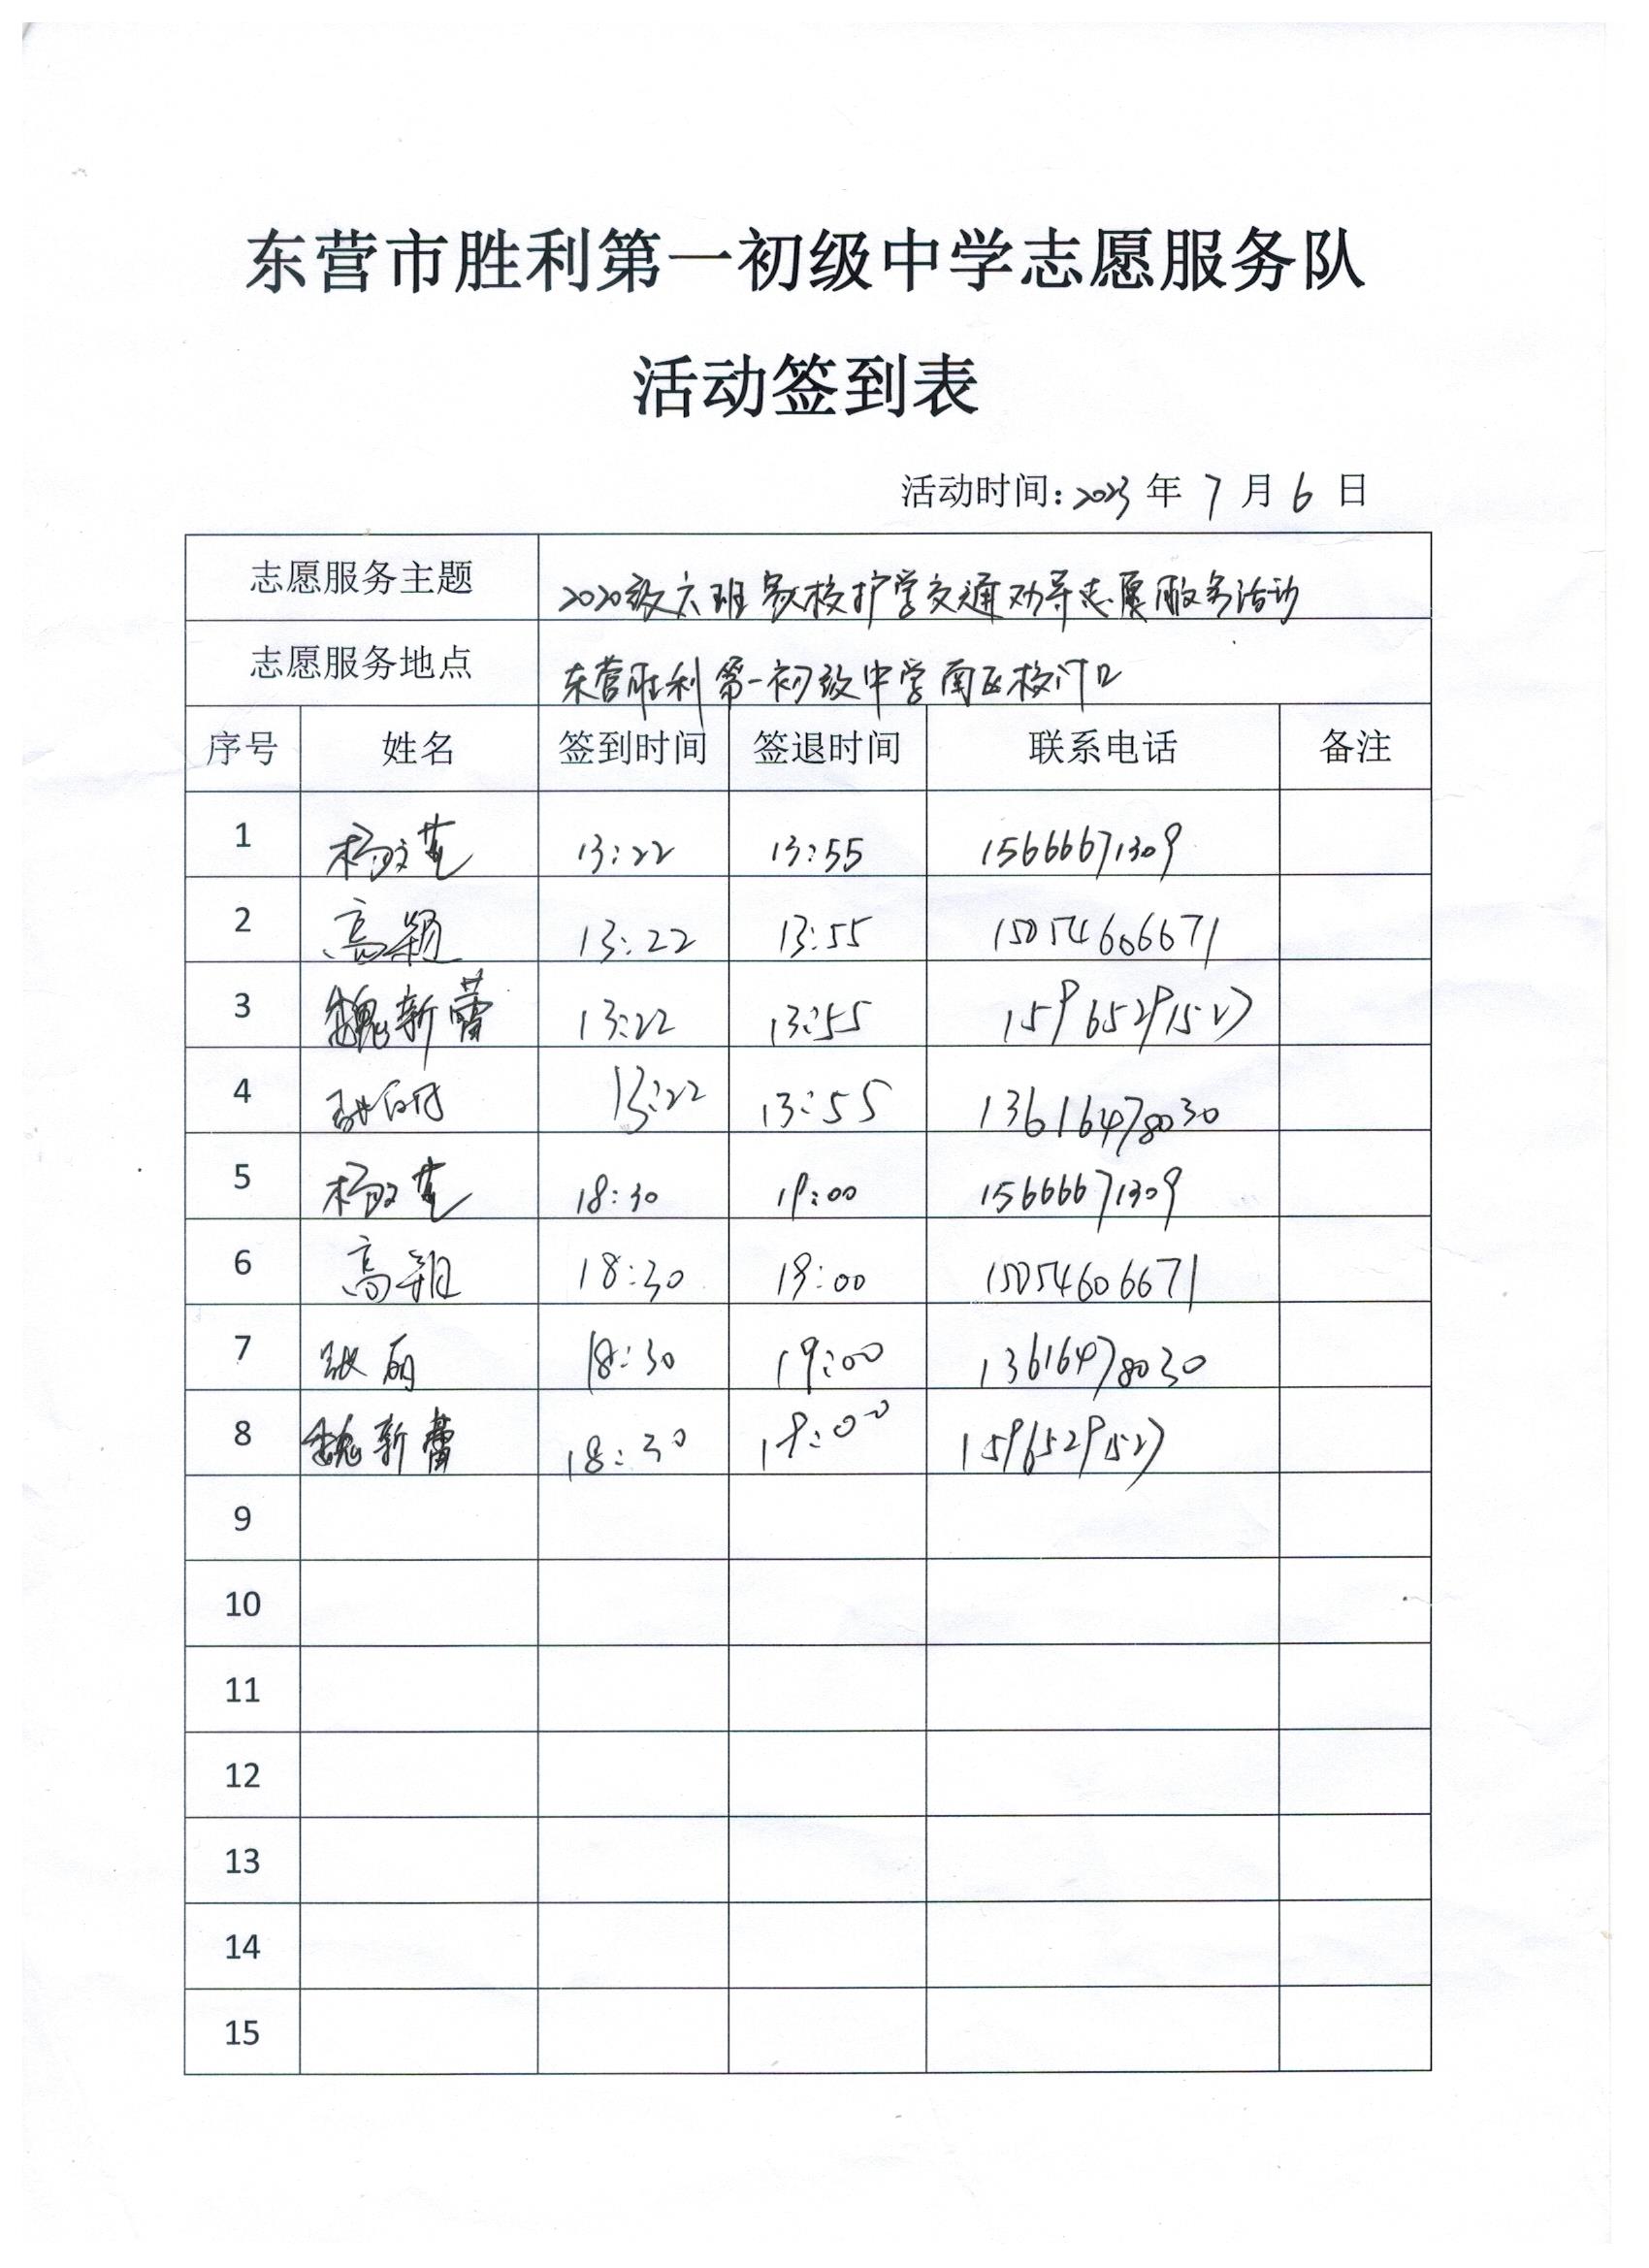 东营市胜利第一初级中学志愿服务队
活动签到表
活动时间: 2023 年 7 月 6 日
志愿服务主题 2020级六班家校护学交通劝导志愿服务活动
志愿服务地点 东营胜利第一初级中学南区校门口
序号 姓名 签到时间 签退时间 联系电话 备注
1 杨文 13:22 13:55 15666671309
2 高颖 13:22 13:55 15054606671
3 魏新蕾 13:22 13:55 15965291527
4 张丽 13:22 13:55 13616478030
5 杨文 18:30 19:00 15666671309
6 高颖 18:30 19:00 15054606671
7 张丽 18:30 19:00 13616478030
8 魏新蕾 18:30 19:00 15965291527
9
10
11
12
13
14
15